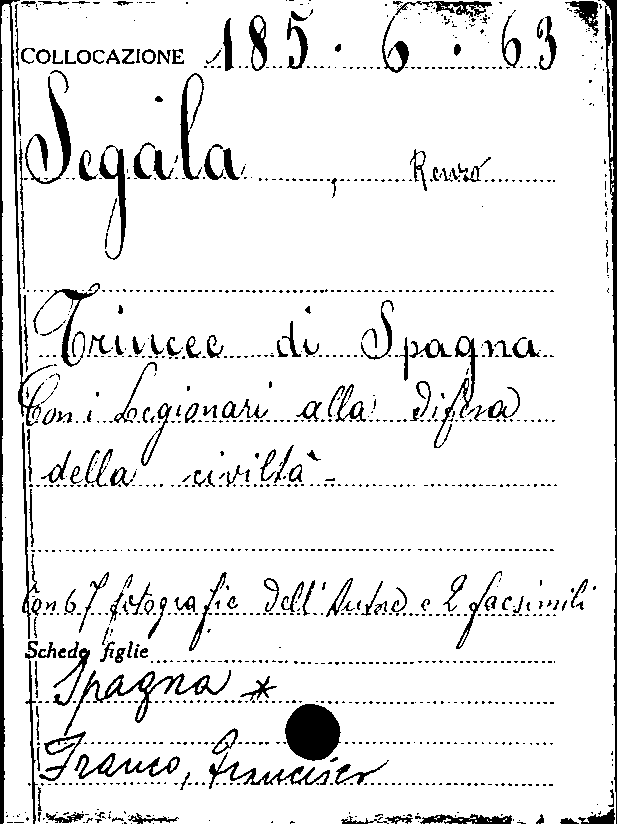 COLLOCAZIONE 185. 6. 63
Segàla, Renzo
Trincee di Spagna
Con i Legionari alla difesa
della civiltà -
Con 67 fotografie dell'Autore e 2 facsimili
Schede figlie
Spagna *
Franco, Francisco